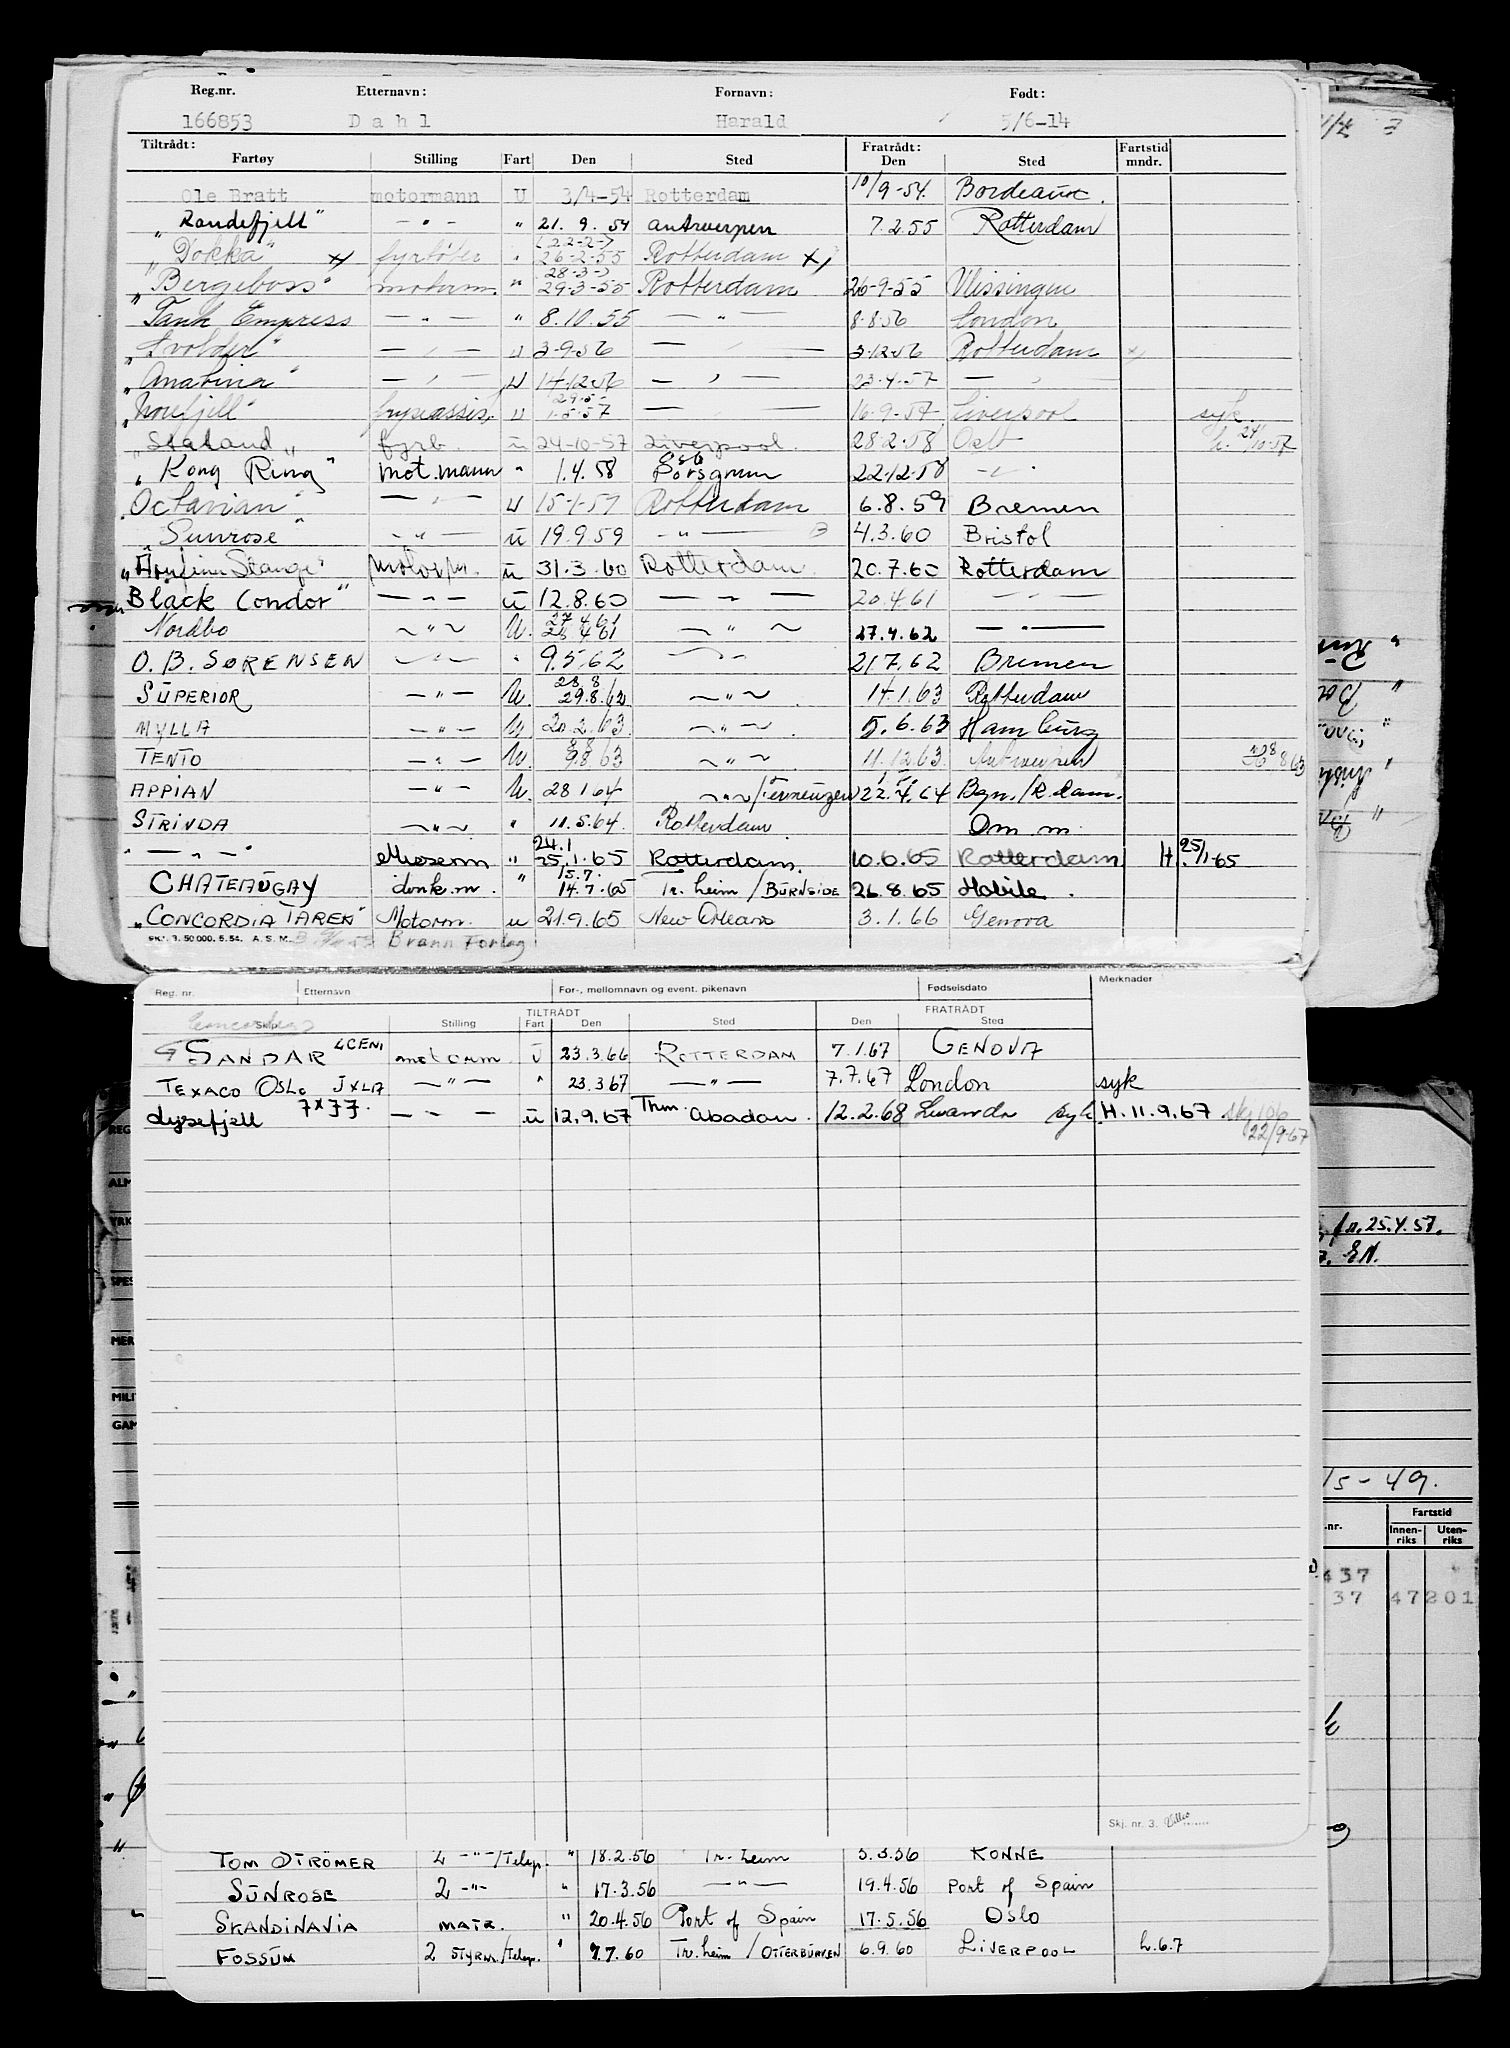 Reg.nr. Etternavn: Fornavn: Født:
166853 Dahl Harald 5/6-14
Tiltrådt: Fratrådt: Fartstid
Fartøy Stilling Fart Den Sted Den Sted mndr.
Ole Bratt motormann U 3/4-54 Rotterdam 10/9-54. Bordeaux.
"Randefjell" - " - " 21. 9. 54 Antwerpen 7.2.55 Rotterdam
(22-2-)
"Dokka" x) fyrbøter " 26-2-55 Rotterdam x)
28-3-)
"Bergeboss" motorm. " 29-3-55 Rotterdam 20-9-55 Vlissingen
Tank Empress — " — " 8.10.55 — " — 8-8-56 London
"Svolder" — " — U 3-9-56 — " — 3-12-56 Rotterdam x)
"Anatina" — " — U 14-12-56 — " — 23-4-57 — " —
"Norefjell" fryseassist. U 1-5-57 — — 16-9-57 Liverpool syk
"Staland" fyrb ū 24-10-57 Liverpool 28-2-58 Oslo h. 24/10-57
"Kong Ring" mot.mann " 1.4.58 Porsgrunn 22.12.58 - " -
Octavian" — " — U 15-1-59 Rotterdam 6.8.59 Bremen
"Sunrose" - " - ū 19.9.59 - " - 4.3.60 Bristol
motorm. ū 31.3.60 Rotterdam 20.7.60 Rotterdam
Black Condor" — " — ū 12.8.60 — " — 20.4.61 — " —
27 4 61
Nordbo ~ " ~ U. 28 4 61 ~ " ~ 27.4.62 — " —
O. B. SØRENSEN — " — " 9.5.62 — " — 21.7.62 Bremen
28.8
SUPERIOR — " — U. 29.8.62 ~ " ~ 14.1.63 Rotterdam
MYLLA - " - U. 20.2.63 ~ " ~ 5.6.63 Hamburg
8 8
TENTO — " — U. 9.8.63 ~ " ~ 11.12.63. Antwerpen
APPIAN - " - U. 28 1 64 ~ " ~ /Terneuzen 22.4.64 Bgn./R.dam.
STRINDA ~ " ~ " 11.5.64. Rotterdam Om m.
24.1
" — " — " " 25.1.65 Rotterdam. 10.6.65 Rotterdam H. 25/1-65
15.7.
CHATEAUGAY donk.m. " 14.7.65 Tr.heim / BURNSIDE 26.8.65 Mobile.
"CONCORDIA TAREK" Motorm. u 21.9.65 New Orleans 3.1.66 Genova
Skj. 3. 50 000. 5. 54. A. S. M.
Reg. nr. Etternavn For-, mellomnavn og event. pikenavn Fødselsdato Merknader
TILTRÅDT FRATRÅDT
Skip Stilling Fart Den Sted Den Sted
SANDAR LCEN1 motorm. Ū 23.3.66 ROTTERDAM 7.1.67 GENOVA
TEXACO OSLO JXLA — " — " 23.3.67 — " — 7.7.67 London syk
Lysefjell — " — ū 12.9.67 Thm. Abadan. 12.2.68 Luanda syk. H. 11.9.67
22/9-67
Skj. nr. 3.
TOM STRÖMER 2 - " - /Telegr. " 18.2.56 Tr. heim 5.3.56 RØNNE
SUNROSE 2 - " - " 17.3.56 — " — 19.4.56 Port of Spain
SKANDINAVIA MATR. " 20.4.56 Port of Spain 17.5.56 Oslo
FOSSUM 2 STYRM./Telegr. " 7.7.60 Tr.heim / OTTERBURKEN 6.9.60 LIVERPOOL h.6.7
fr. 25.4.57.
EN.
/5-49.
.nr. Fartstid
Innen-riks Uten-riks
437
37 47 201